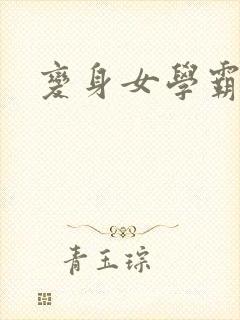 變身女學霸
青玉琮